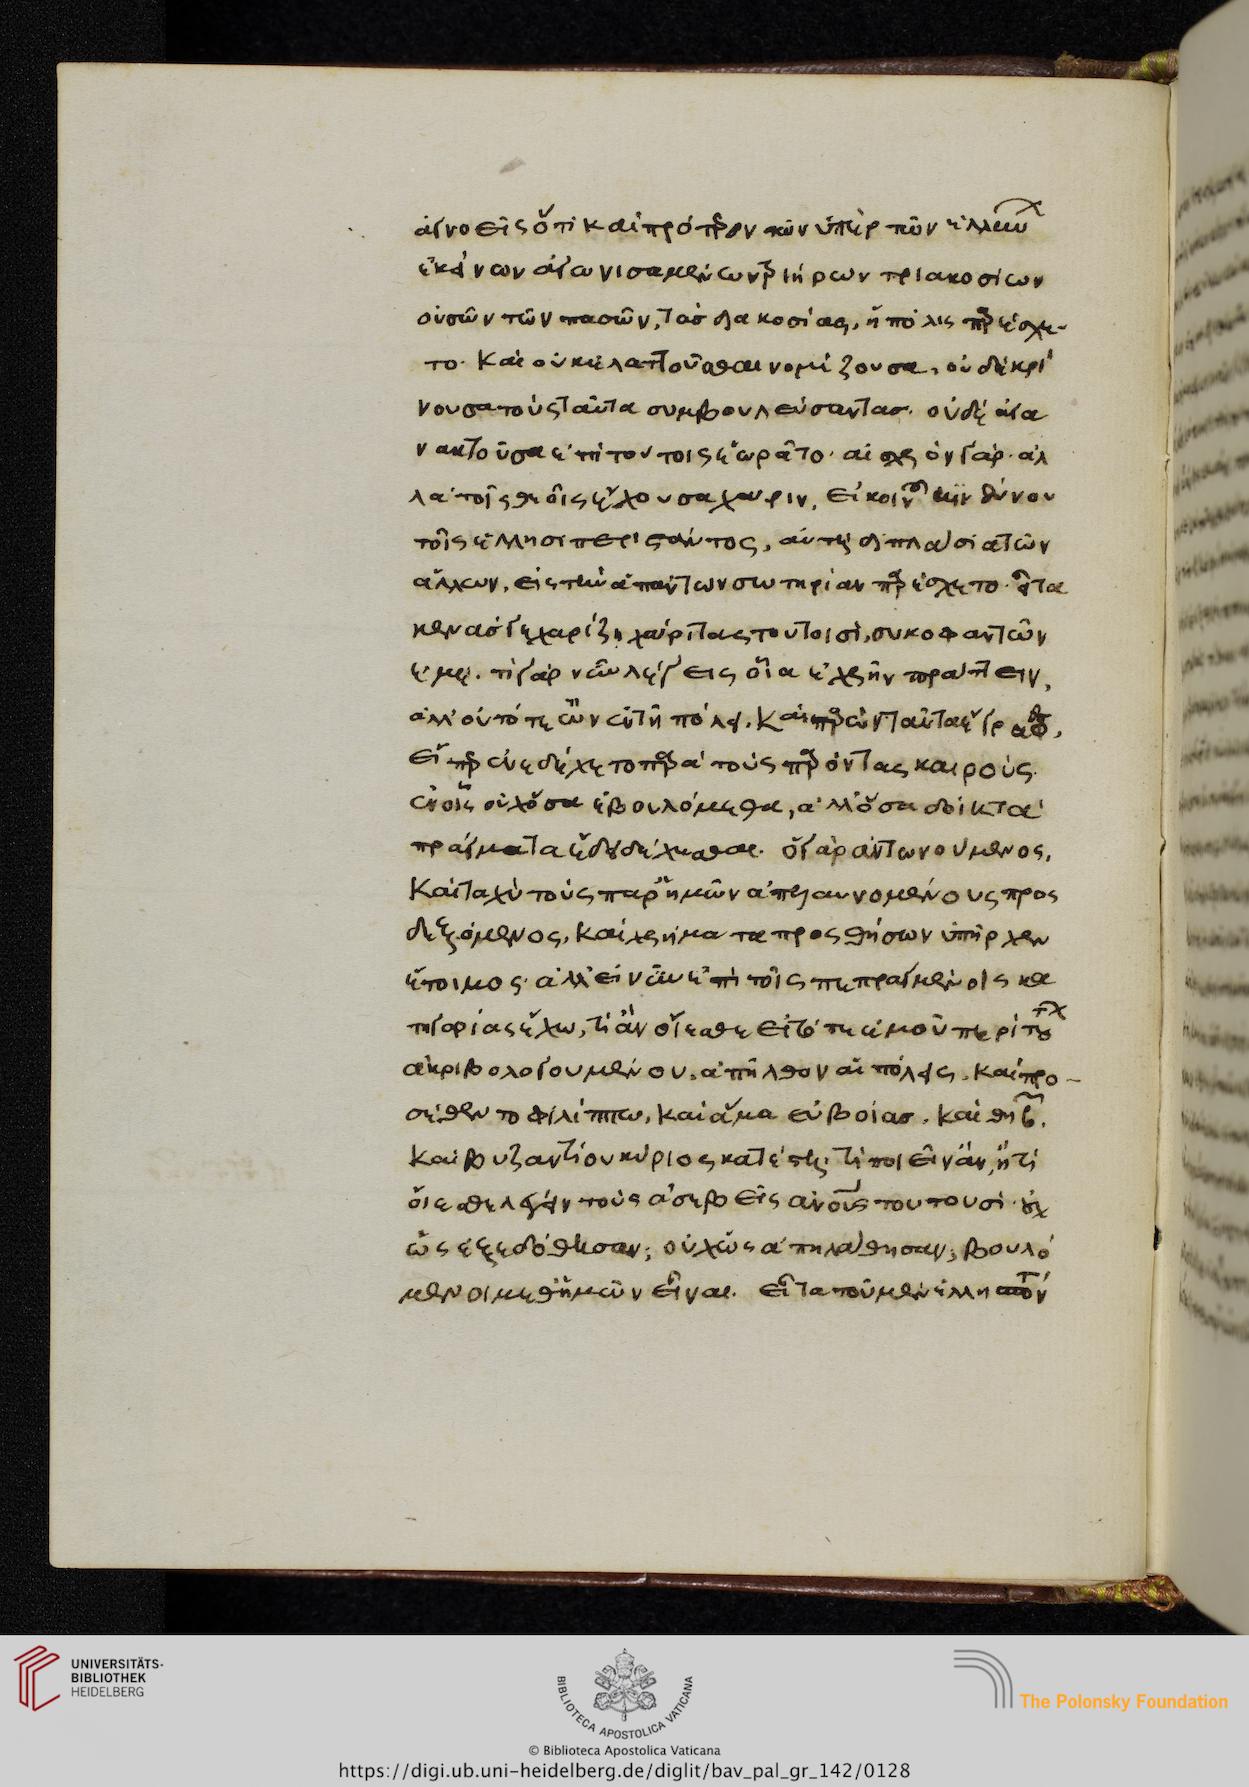 ἀγνοεῖς ὅτι καὶ πρότερον τῶν ὑπὲρ τῶν ἑλλήνων
ἐκείνων ἀγωνισαμένων τριήρων τριακοσίων
οὐσῶν τῶν πασῶν, τὰς διακοσίας, ἡ πόλις παρέσχε-
το· καὶ οὐκ ἐλαττοῦσθαι νομίζουσα, οὐδὲ κρί
νουσα τοὺς ταῦτα συμβουλεύσαντας· οὐδὲ ἀγα
νακτοῦσα ἐπὶ τούτοις ἑωρᾶτο· αἰσχρὸν γάρ· ἀλ
λὰ τοῖς θεοῖς ἔχουσα χάριν, εἰ κοινοῦ κινδύνου
τοῖς ἕλλησι περιστάντος, αὐτὴ διπλάσια τῶν
ἄλλων, εἰς τὴν ἁπάντων σωτηρίαν παρέσχετο· εἶτα
κενάς γε χαρίζη χάριτας τουτοισὶ, συκοφαντῶν
ἐμέ. τί γὰρ νῦν λέγεις οἷα ἐχρῆν πράττειν,
ἀλλ' οὐ τότε ὢν ἐν τῆ πόλει. καὶ παρὼν ταῦτα ἔγραφες,
εἴπερ ἐνεδέχετο παρὰ τοὺς παρόντας καιροὺς.
ἐν οἷς οὐχ ὅσα ἐβουλόμεθα, ἀλλ' ὅσα δοίη τὰ
πράγματα ἔδει δέχεσθαι· ὁ γὰρ ἀντωνούμενος,
καὶ ταχὺ τοὺς παρ' ἡμῶν ἀπελαυνομένους προς
δεξόμενος, καὶ χρήματα προσθήσων ὑπῆρχεν
ἕτοιμος· ἀλλ' εἰ νῦν ἐπὶ τοῖς πεπραγμένοις κα
τηγορίας ἔχω, τί ἂν οἴεσθε εἰ τότε ἐμοῦ περὶ τούτων
ἀκριβολογουμένου, ἀπῆλθον αἱ πόλεις, καὶ προ-
σέθεντο φιλίππω, καὶ ἅμα εὐβοίας, καὶ θηβῶν,
καὶ βυζαντίου κύριος κατέστη· τί ποιεῖν ἂν, ἢ τί
οἴεσθε λέγειν τοὺς ἀσεβεῖς ἀνθρώπους τουτουσὶ· οὐχ
ὡς ἐξεδόθησαν; οὐχ ὡς ἀπηλάθησαν; βουλό
μενοι μεθ' ἡμῶν εἶναι. εἶτα τοῦ μὲν ἑλλησπόντου
UNIVERSITÄTS-
BIBLIOTHEK
HEIDELBERG
BIBLIOTECA APOSTOLICA VATICANA
The Polonsky Foundation
© Biblioteca Apostolica Vaticana
https://digi.ub.uni-heidelberg.de/diglit/bav_pal_gr_142/0128